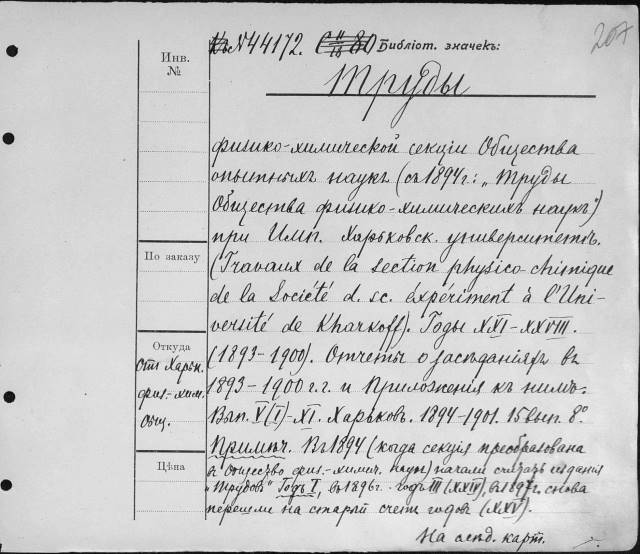 № 44172. Библіот. значекъ:
207
Инв. №
Труды
физико-химической секціи Общества
опытныхъ наукъ (съ 1894 г: „Труды
Общества физико-химическихъ наукъ")
при Имп. Харьковск. университетѣ.
По заказу
(Travaux de la section physico-chimique
de la Société d. sc. éxpériment à l'Uni-
versité de Kharkoff). Годы XXI-XXVIII.
Откуда
(1893-1900). Отчеты о засѣданіяхъ въ
Отъ Харьк.
1893-1900 г.г. и Приложенія къ нимъ.
физ.-хим.
Общ.
Вып. V(I)-XI. Харьковъ. 1894-1901. 15 вып. 8°
Примѣч. Въ 1894 (когда секція преобразована
Цѣна
въ Общество физ.-химич. наукъ) начали считать изданія
"Трудовъ" Годъ I, въ 1896 г. годъ III (XXIV), въ 1897 г. снова
перешли на старый счетъ годовъ (XXV).
На слѣд. карт.